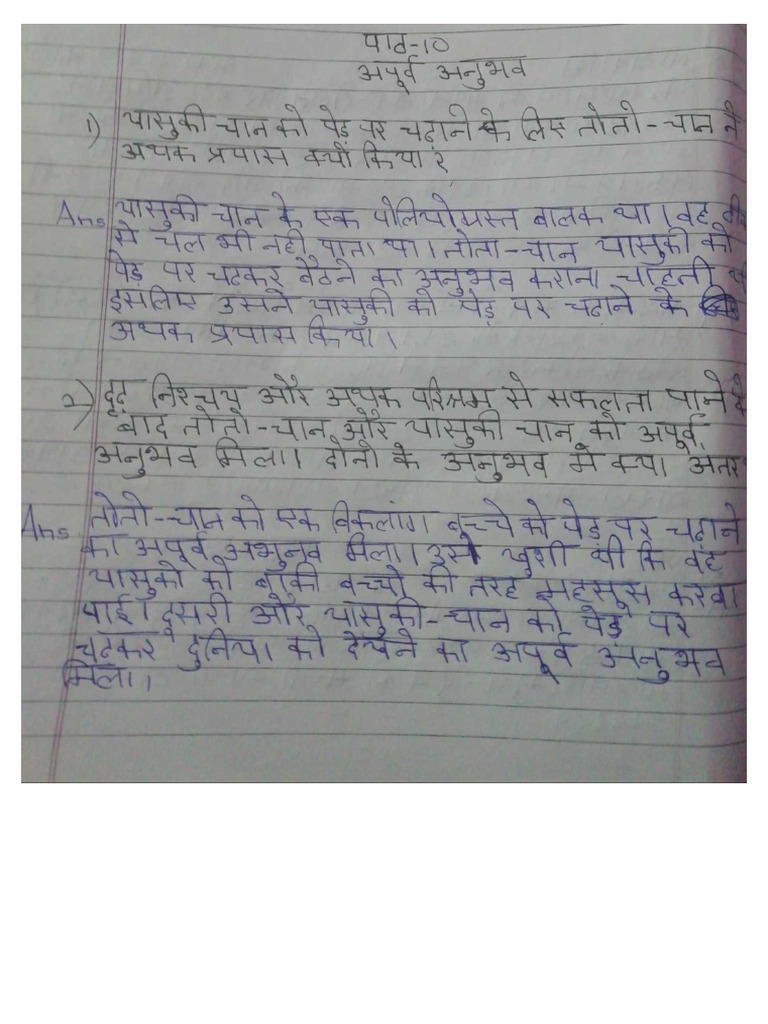 पाठ-10
अपूर्व अनुभव
1) यासुकी चान को पेड़ पर चढ़ाने के लिए तोतो-चान ने
अथक प्रयास क्यों किया?
Ans यासुकी चान के एक पोलियोग्रस्त बालक था। वह
से चल भी नही पाता था। तोतो-चान यासुकी को
पेड़ पर चढकर बैठने का अनुभव कराना चाहती
इसलिए उसने यासुकी को पेड़ पर चढाने के
अथक प्रयास किया।
2) दृढ़ निश्चय और अथक परिश्रम से सफलता पाने के
बाद तोतो-चान और यासुकी चान को अपूर्व
अनुभव मिला। दोनो के अनुभव मे क्या अंतर
Ans तोतो-चान को एक विकलांग बच्चे को पेड़ पर चढ़ाने
का अपूर्व अभुनव मिला। उसे खुशी थी कि वह
यासुकी को बाकी बच्चो की तरह महसूस करवा
पाई। दूसरी और यासुकी-चान को पेड़ पर
चढकर दुनिया को देखने का अपूर्व अनुभव
मिला।